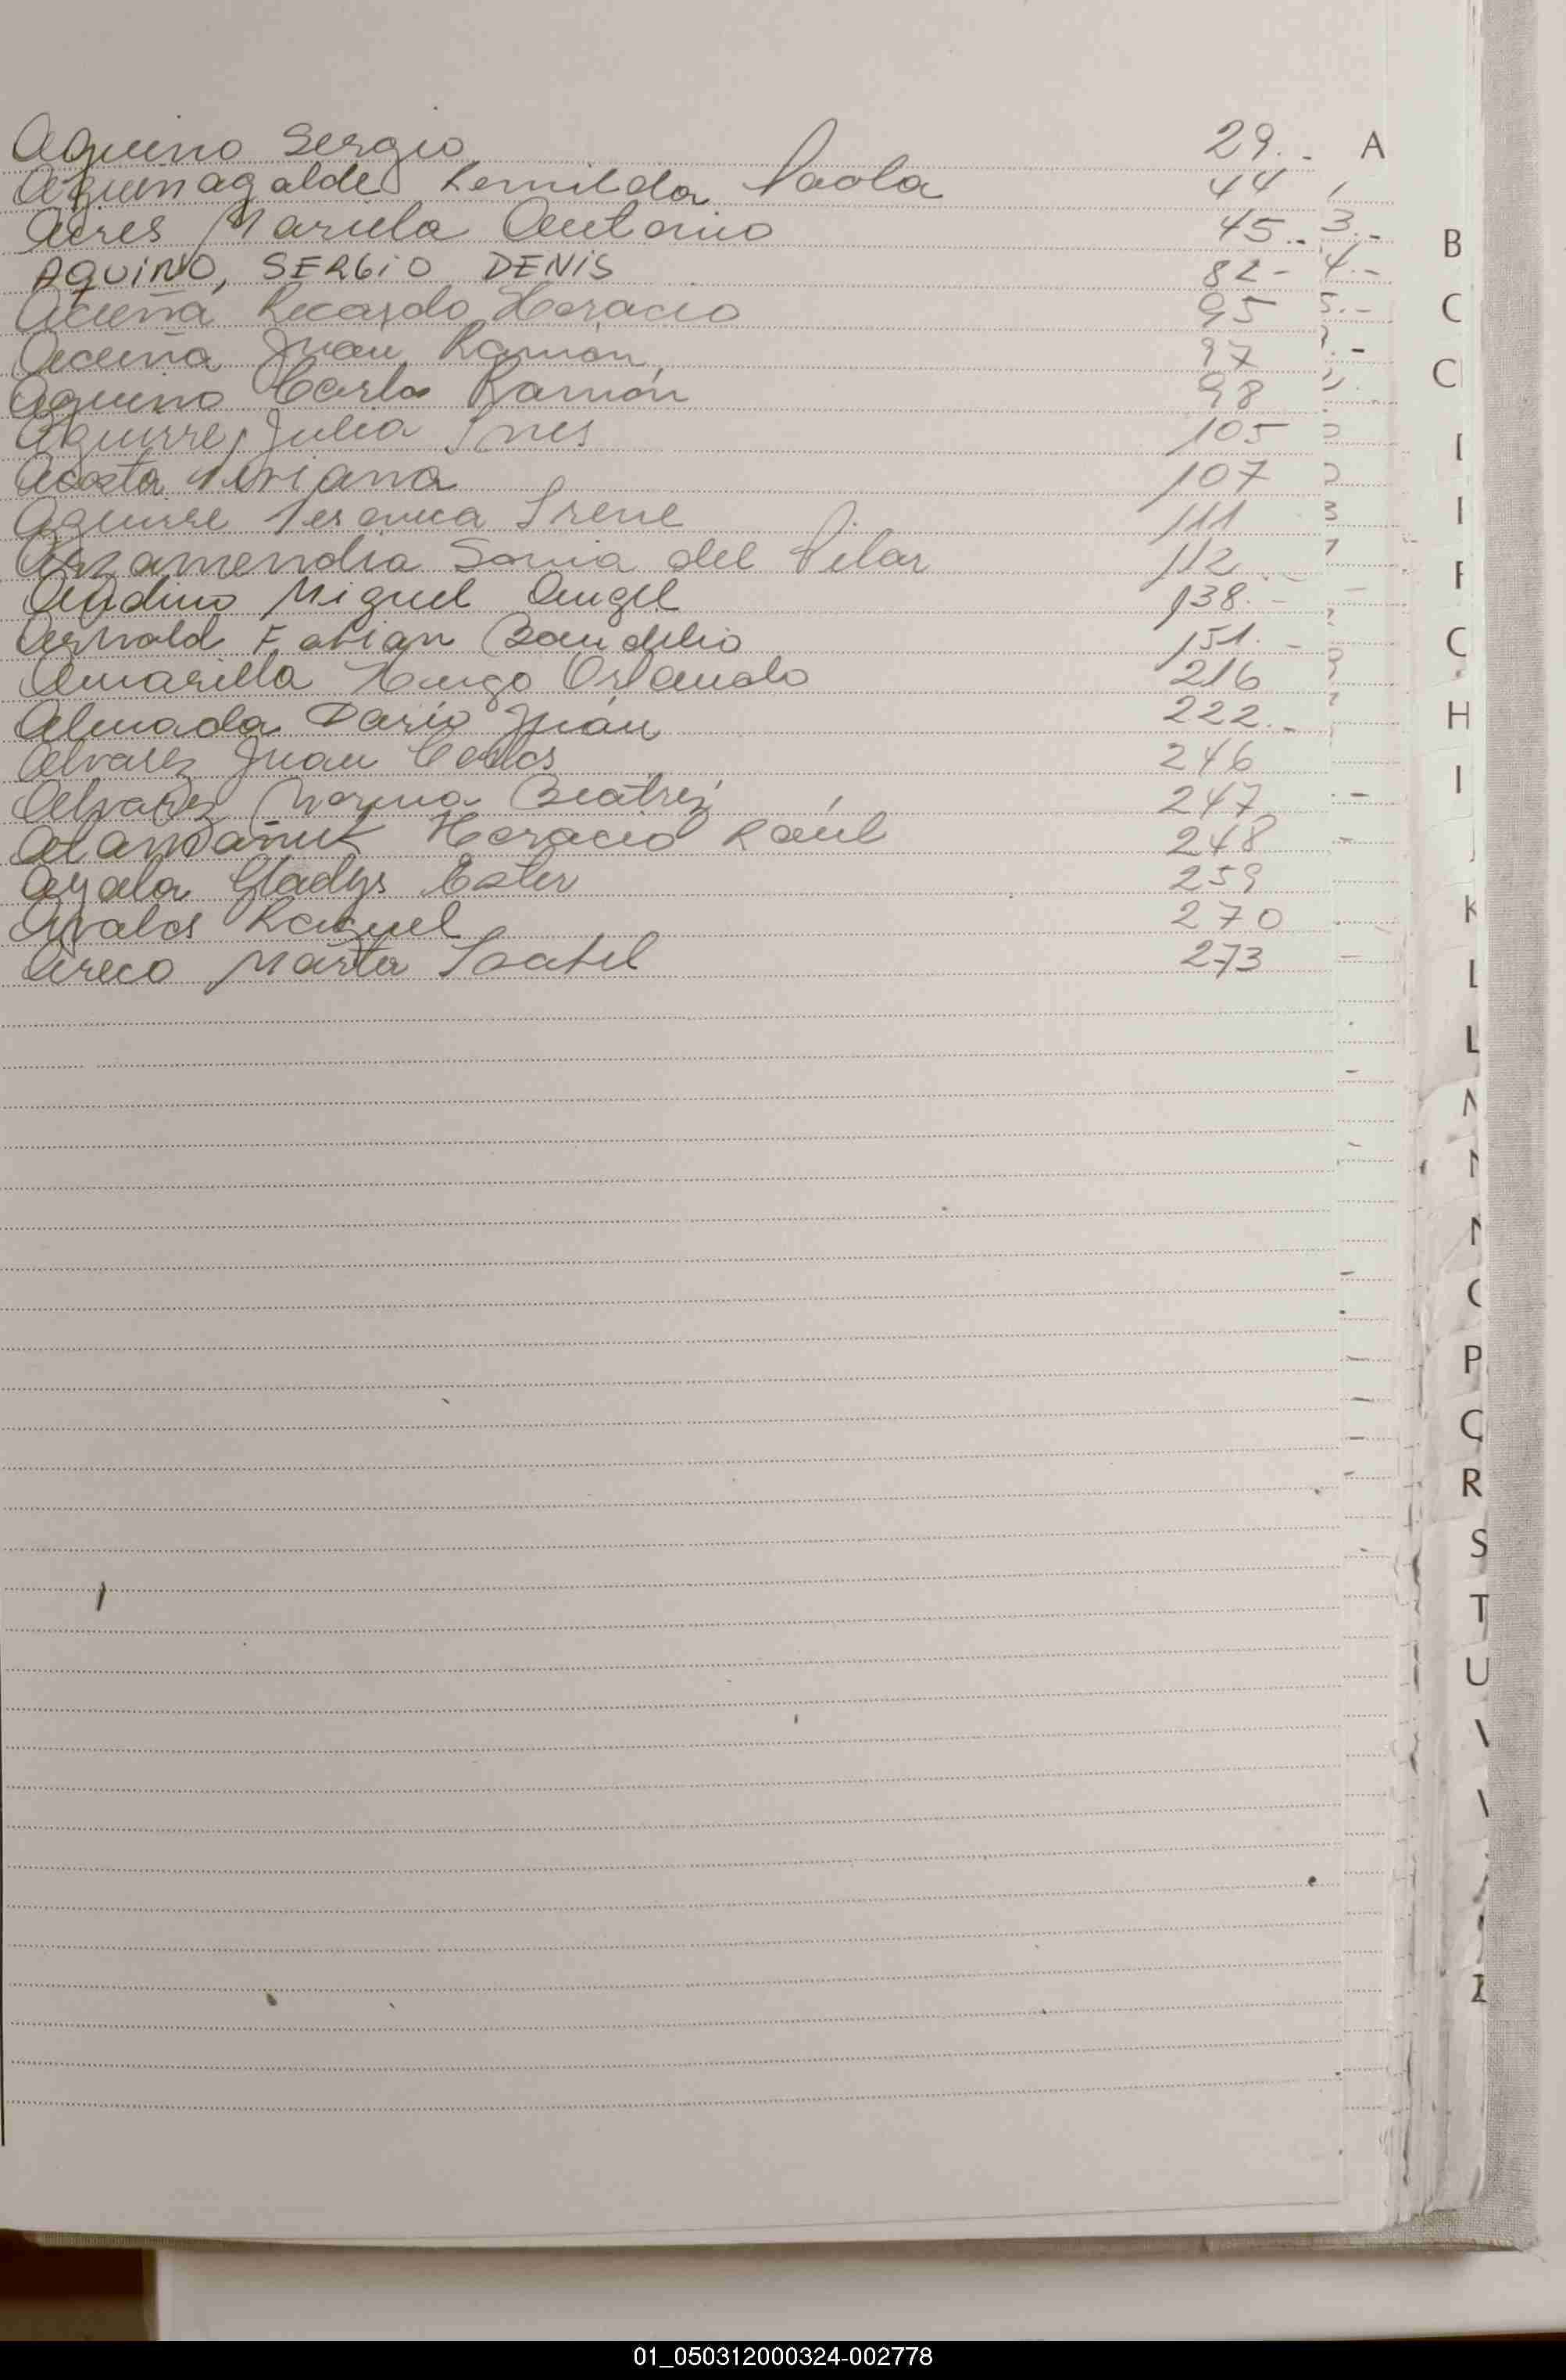 Aquino Sergio 29.. A
Aguinagalde Remilda Paola 44
Aires Mariela Antonio 45.. 3.-
AQUINO, SERGIO DENIS 82- 4.-
Acuña Ricardo Horacio 95 5.-
Acuña Juan Ramón, 97
Aquino Carlos Ramón 98
Aguirre, Julia Ines 105
Acosta Viviana 107
Aguirre Veronica Irene 111
Arzamendia Sonia del Pilar 112
Andino Miguel Angel 138.-
Arnold Fabian Baudilio 151.
Amarilla Hugo Orlando 216
Almada Darío Juán 222.-
Alvarez Juan Carlos 246
Alvarez Norma Beatriz 247
Horacio Raúl 248
Ayala Gladys Ester 259
Avalos Raquel 270
Areco Marta Isabel 273
B
C
H
I
K
L
L
P
R
S
T
U
Z
01_050312000324-002778